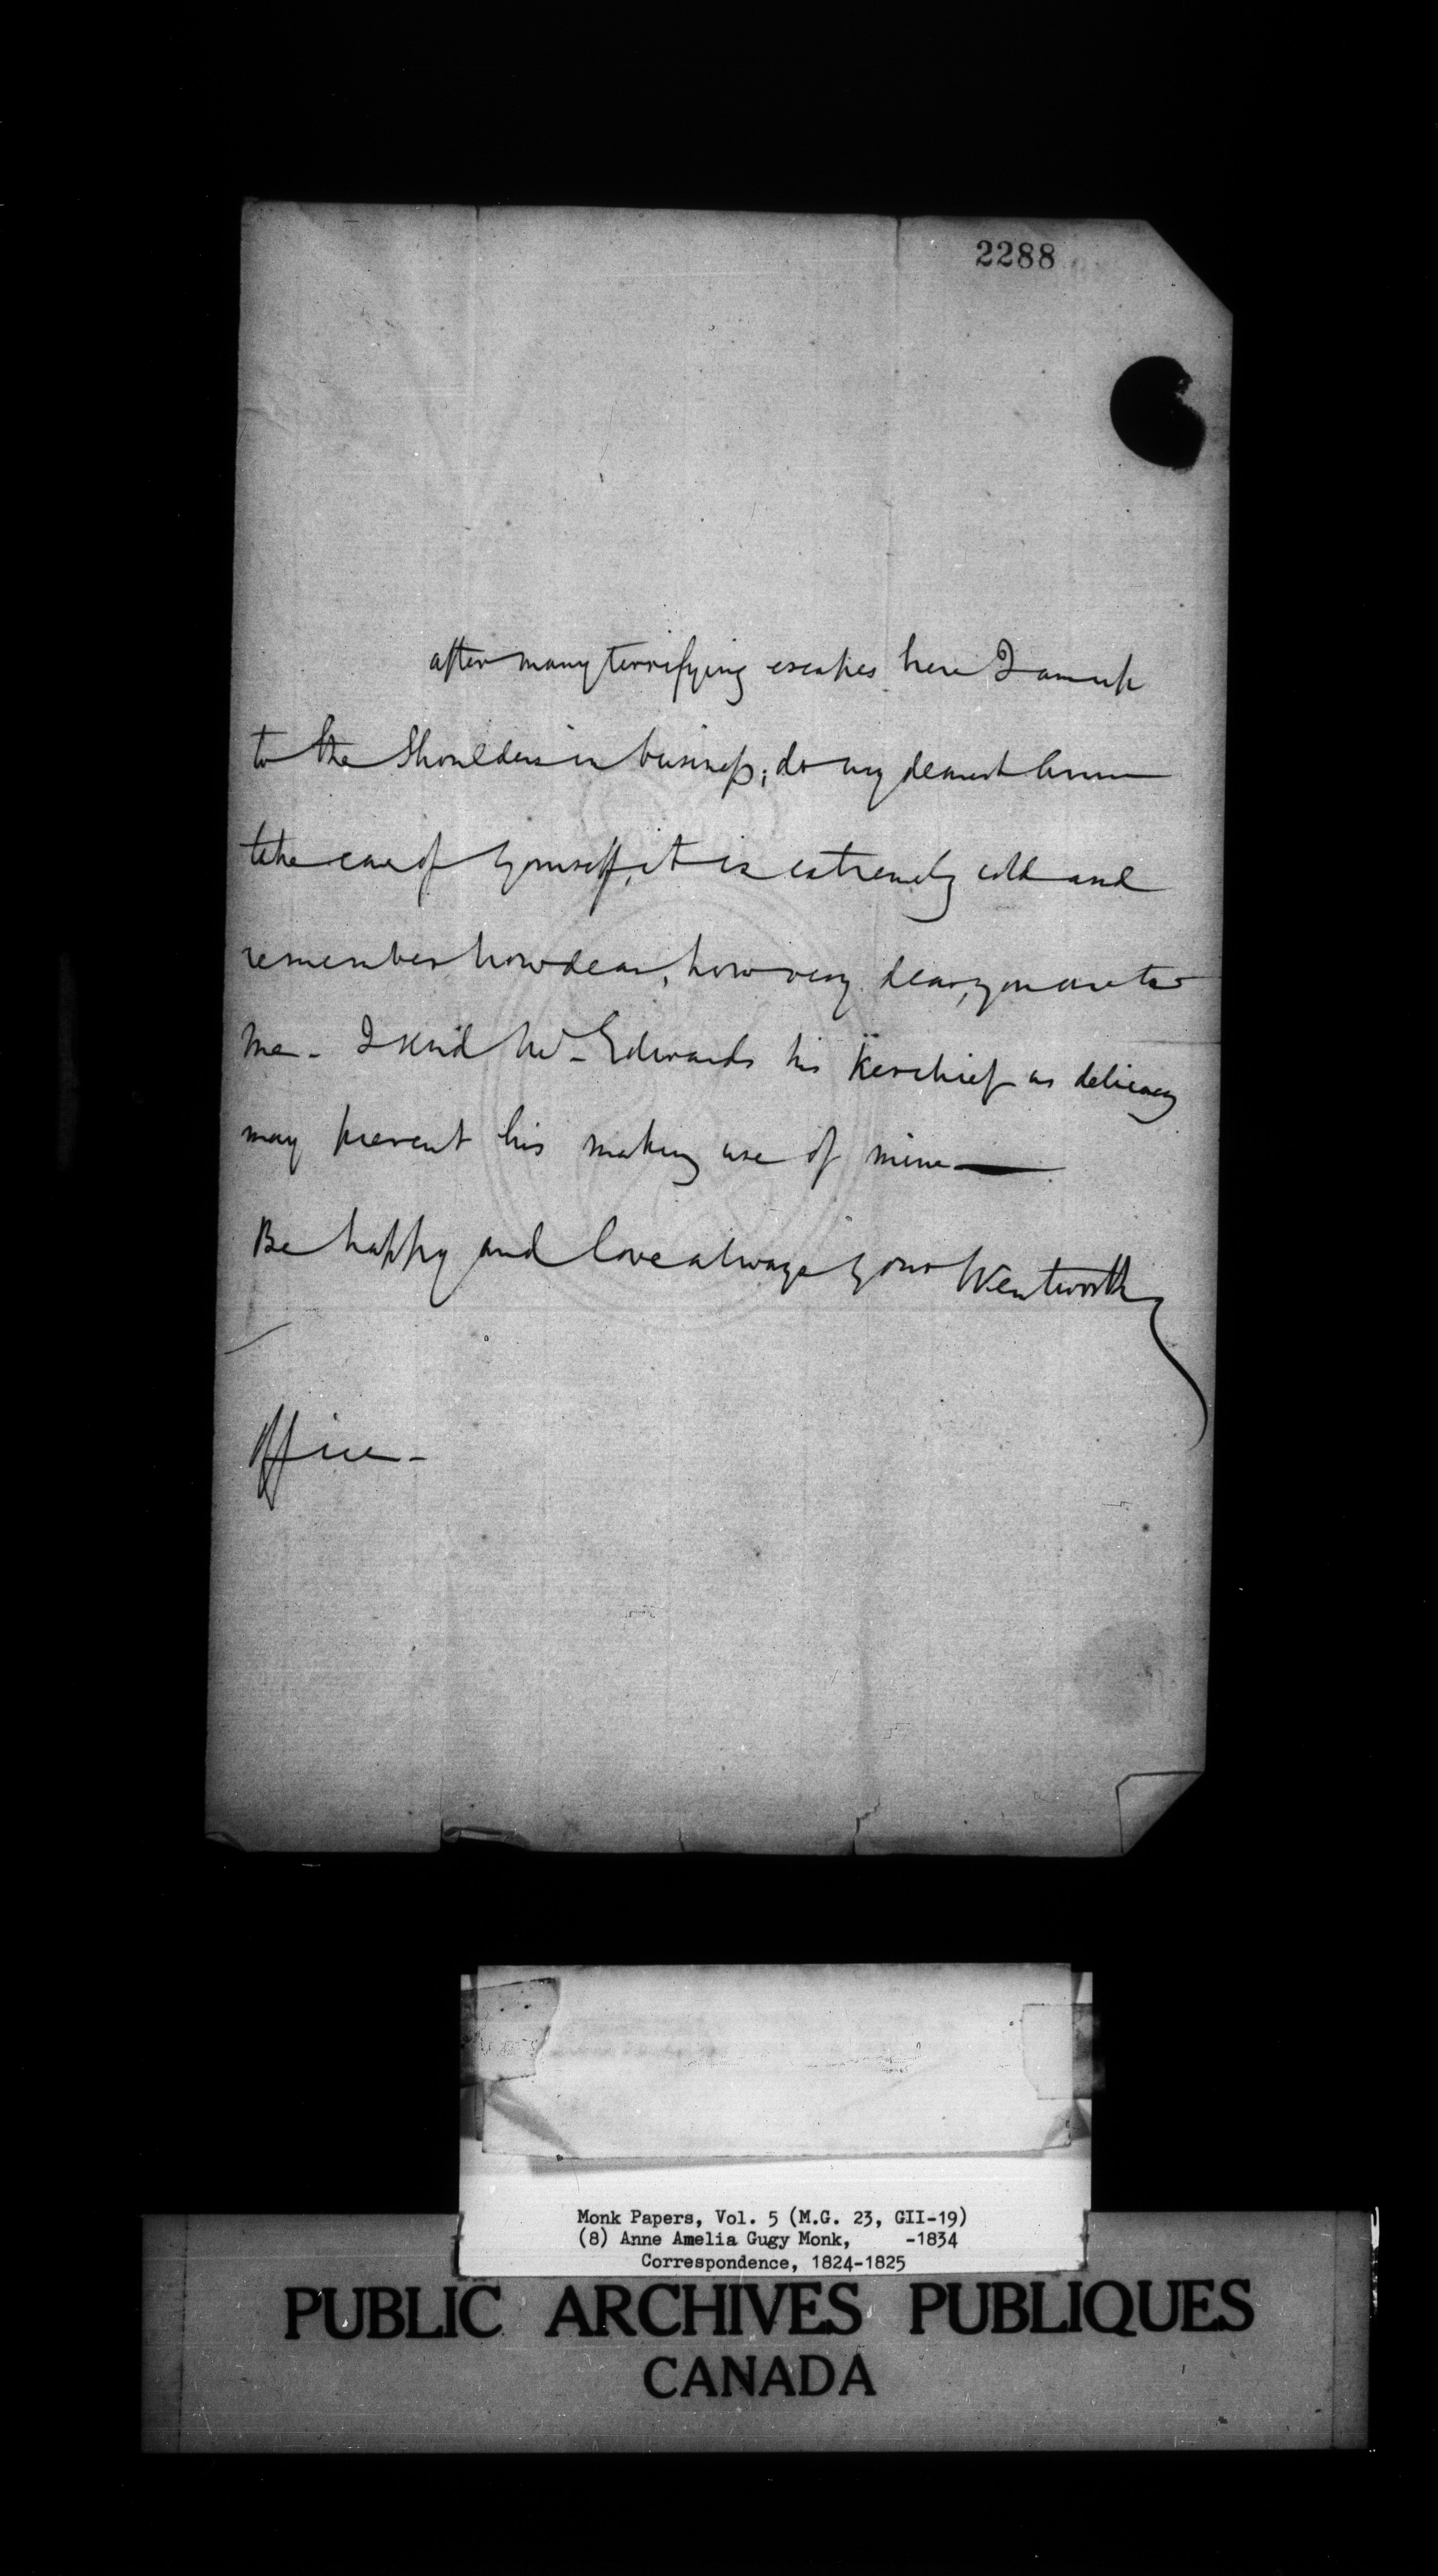 2288
after many terrifying escapes here I am up
to the Shoulders in business; do my dearest Anne
take care of yourself, it is extremely cold and
remember how dear, how very dear, you are to
me - I send Mr Edwards his Kerchief as delicacy
may prevent his making use of mine —
Be happy and love always your Wentworth
Office -
Monk Papers, Vol. 5 (M.G. 23, GII-19)
(8) Anne Amelia Gugy Monk, -1834
Correspondence, 1824-1825
PUBLIC ARCHIVES PUBLIQUES
CANADA